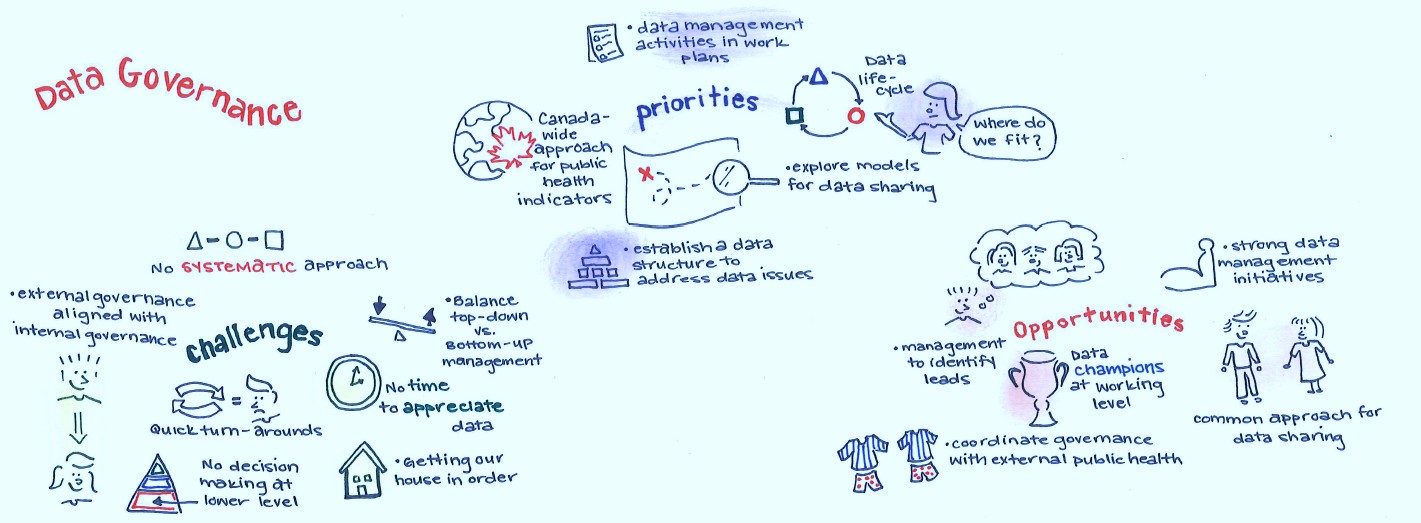 Data Governance
priorities
• data management
activities in work
plans
Data
life-
cycle
Where do
we fit?
Canada-
wide
approach
for public
health
indicators
• explore models
for data sharing
• establish a data
structure to
address data issues
challenges
No SYSTEMATIC approach
• external governance
aligned with
internal governance
• Balance
top-down
vs.
Bottom-up
management
No time
to appreciate
data
Quick turn-arounds
No decision
making at
lower level
• Getting our
house in order
Opportunities
• strong data
management
initiatives
• management
to identify
leads
Data
champions
at working
level
common approach for
data sharing
• coordinate governance
with external public health